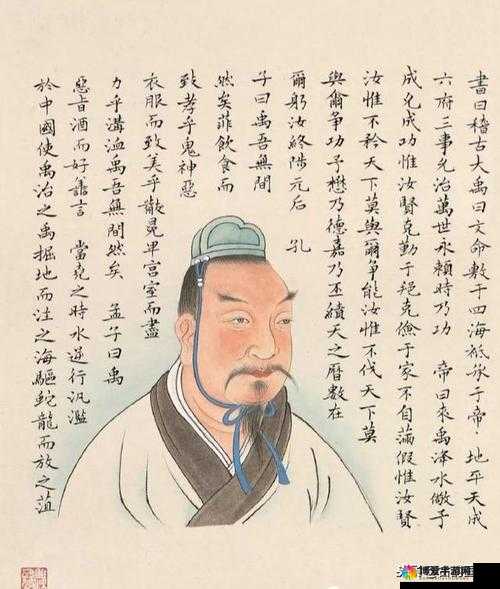 書曰稽古大禹曰文命敷于四海祗承于帝 地平天成
六府三事允治萬世永賴時乃功 帝曰來禹洚水儆予
成允成功惟汝賢克勤于邦克儉于家不自滿假惟汝賢
汝惟不矜天下莫與爾爭能汝惟不伐天下莫
與爾爭功予懋乃德嘉乃丕績天之曆數在
爾躬汝終陟元后 孔
子曰禹吾無間
然矣菲飲食而
致孝乎鬼神惡
衣服而致美乎黻冕卑宮室而盡
力乎溝洫禹吾無間然矣 孟子曰禹
惡旨酒而好善言 當堯之時水逆行汎濫
於中國使禹治之禹掘地而注之海驅蛇龍而放之菹
博爱手游网